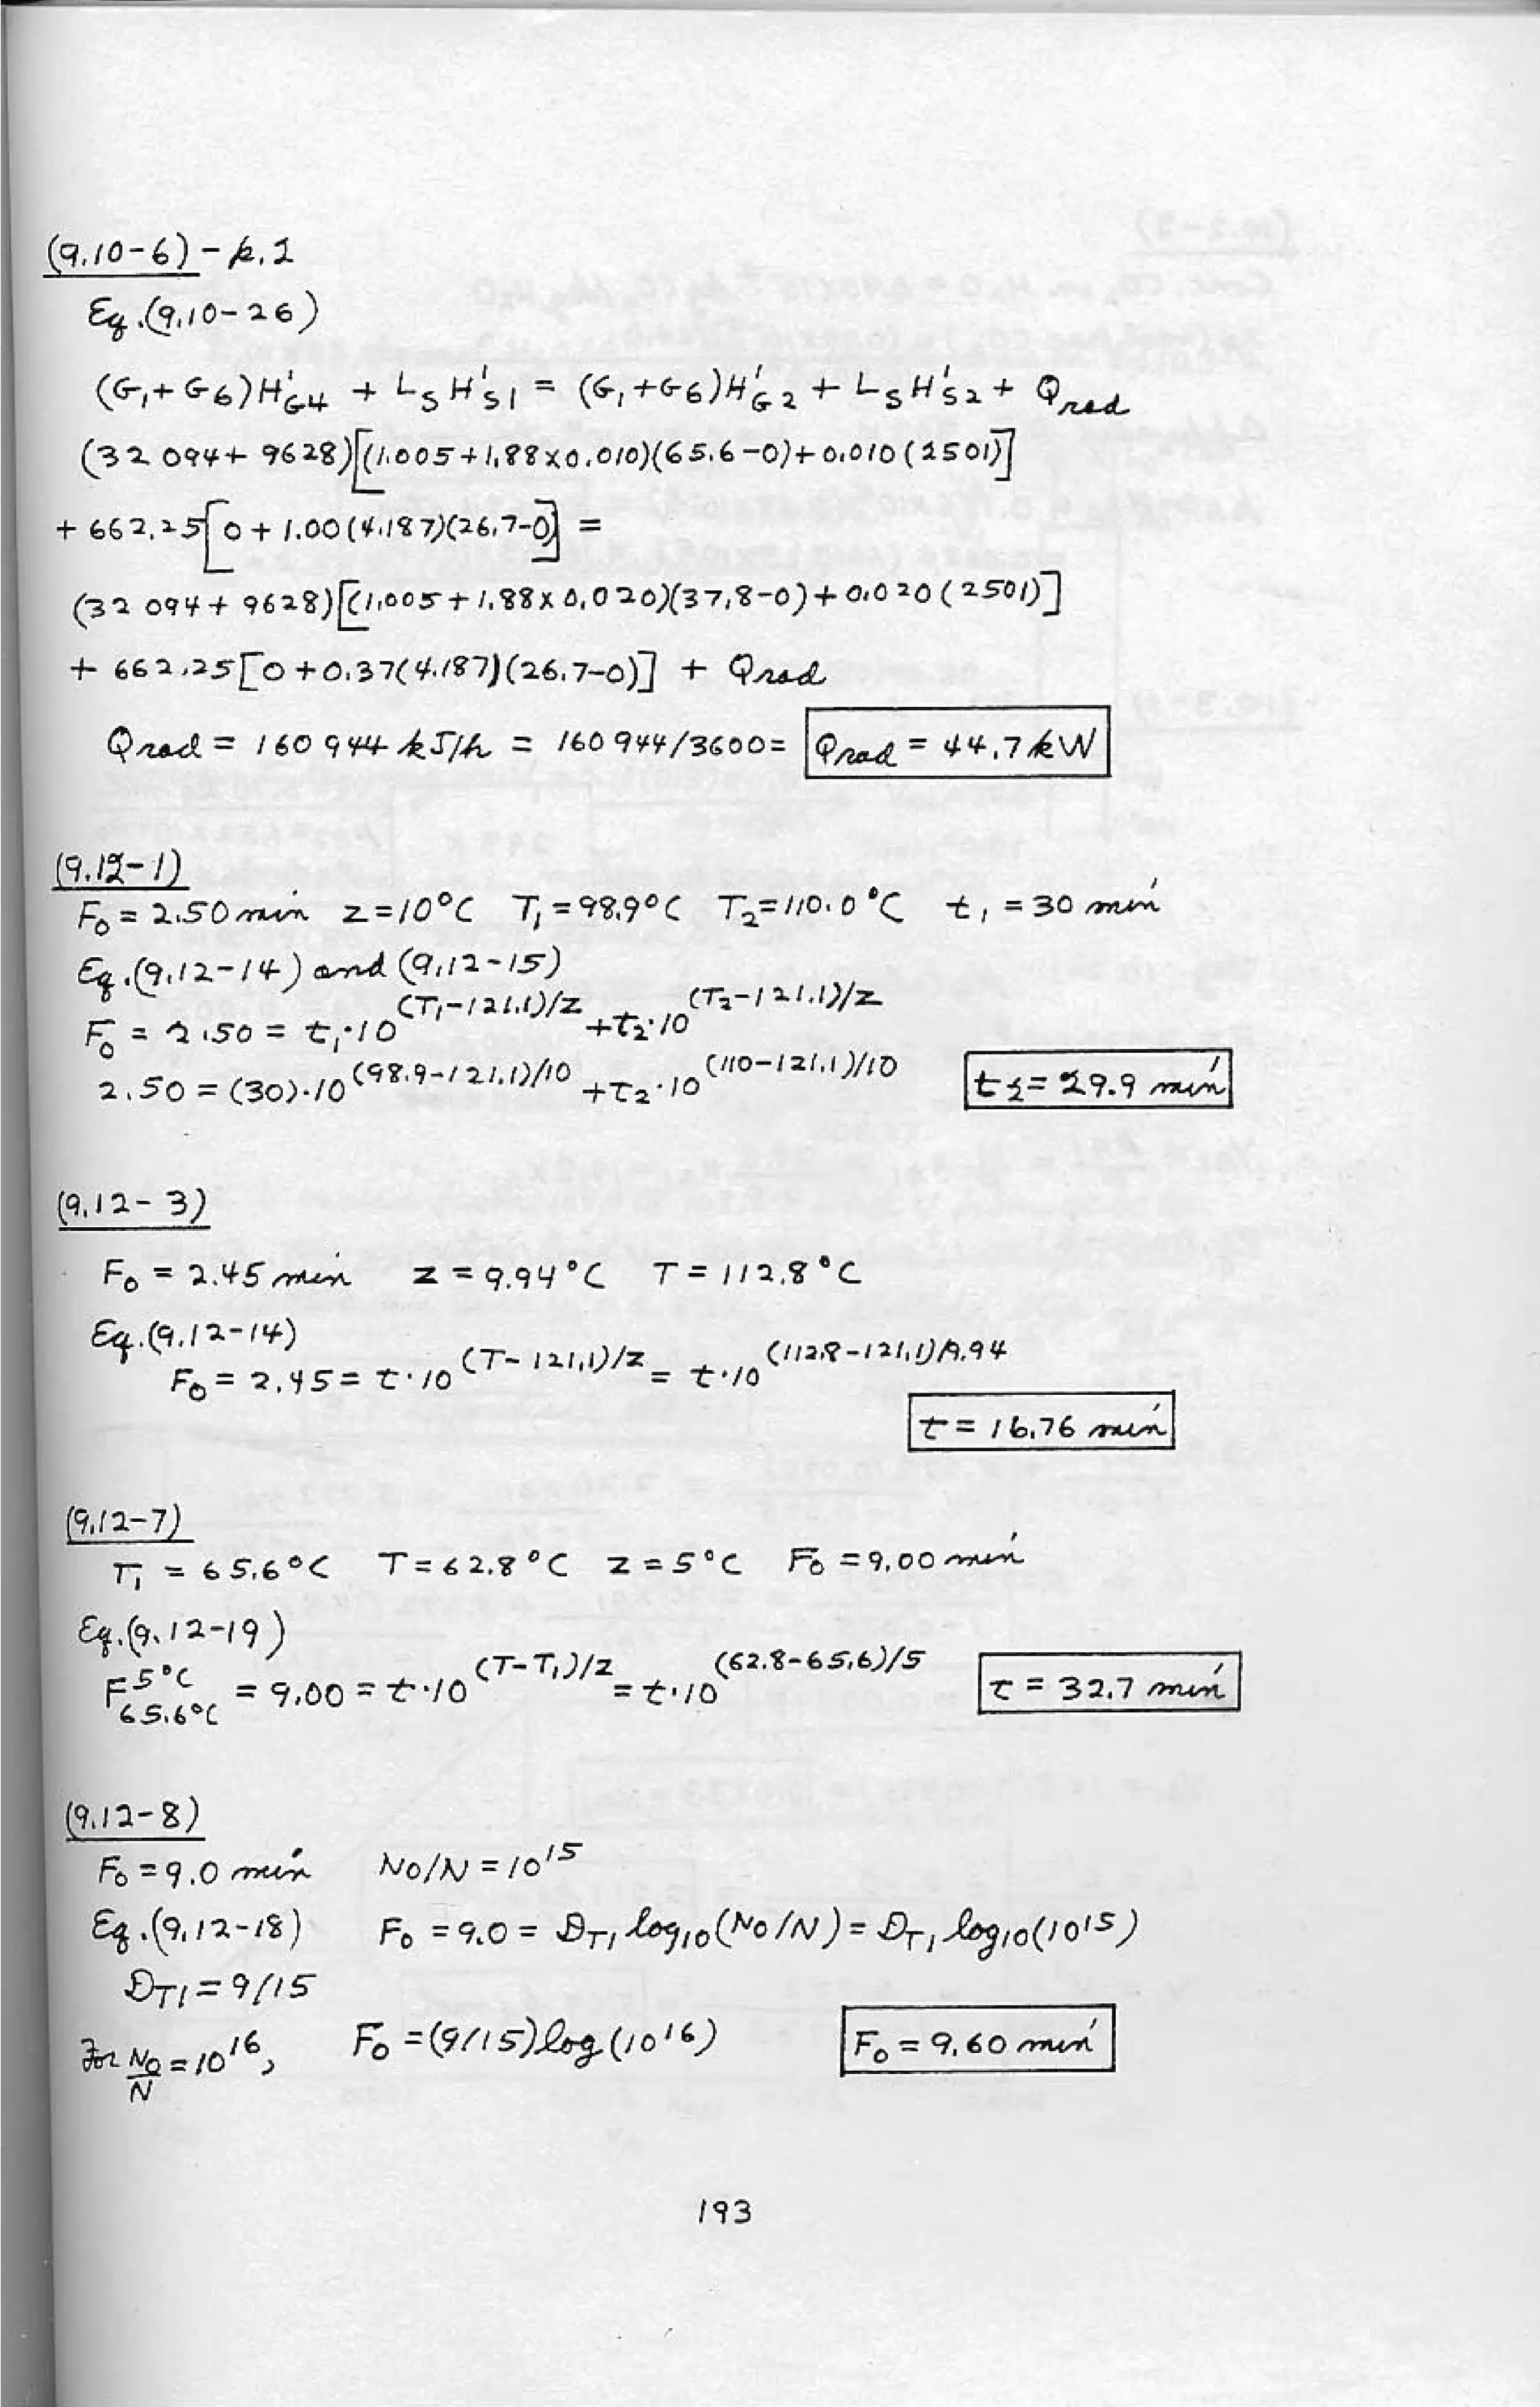 (9.10-6) - p.2
Eq.(9.10-26)
(G₁+G6)H'G4 + LS H'S1 = (G₁+G6)H'G2 + LS H'S2 + Qrad
(32 094+ 9628)[(1.005+1.88x0.010)(65.6-0)+0.010(2501)]
+ 662.25[0+1.00(4.187)(26.7-0)] =
(32 094+ 9628)[(1.005+1.88x0.020)(37.8-0)+0.020(2501)]
+ 662.25[0+0.37(4.187)(26.7-0)] + Qrad
Qrad = 160 944 kJ/h = 160 944/3600 = Qrad = 44.7 kW
(9.12-1)
F₀ = 2.50 min z=10°C T₁=98.9°C T₂=110.0°C t₁=30 min
Eq.(9.12-14) and (9.12-15)
F₀ = 2.50 = t₁·10^(T₁-121.1)/z + t₂·10^(T₂-121.1)/z
2.50 = (30)·10^(98.9-121.1)/10 + t₂·10^(110-121.1)/10 t₂ = 29.9 min
(9.12-3)
F₀ = 2.45 min z = 9.94°C T = 112.8°C
Eq.(9.12-14)
F₀ = 2.45 = t·10^(T-121.1)/z = t·10^(112.8-121.1)/9.94
t = 16.76 min
(9.12-7)
T₁ = 65.6°C T = 62.8°C z = 5°C F₀ = 9.00 min
Eq.(9.12-19)
F^5°C_65.6°C = 9.00 = t·10^(T-T₁)/z = t·10^(62.8-65.6)/5 t = 32.7 min
(9.12-8)
F₀ = 9.0 min N₀/N = 10¹⁵
Eq.(9.12-18) F₀ = 9.0 = DT₁ log₁₀(N₀/N) = DT₁ log₁₀(10¹⁵)
DT₁ = 9/15
For N₀/N = 10¹⁶, F₀ = (9/15)log(10¹⁶) F₀ = 9.60 min
193